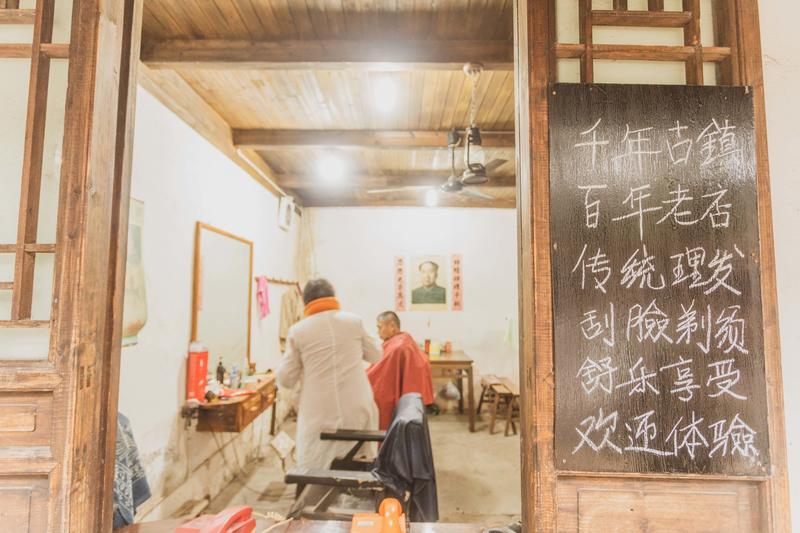 千年古鎮
百年老店
传统理发
刮臉剃须
舒乐享受
欢迎体驗